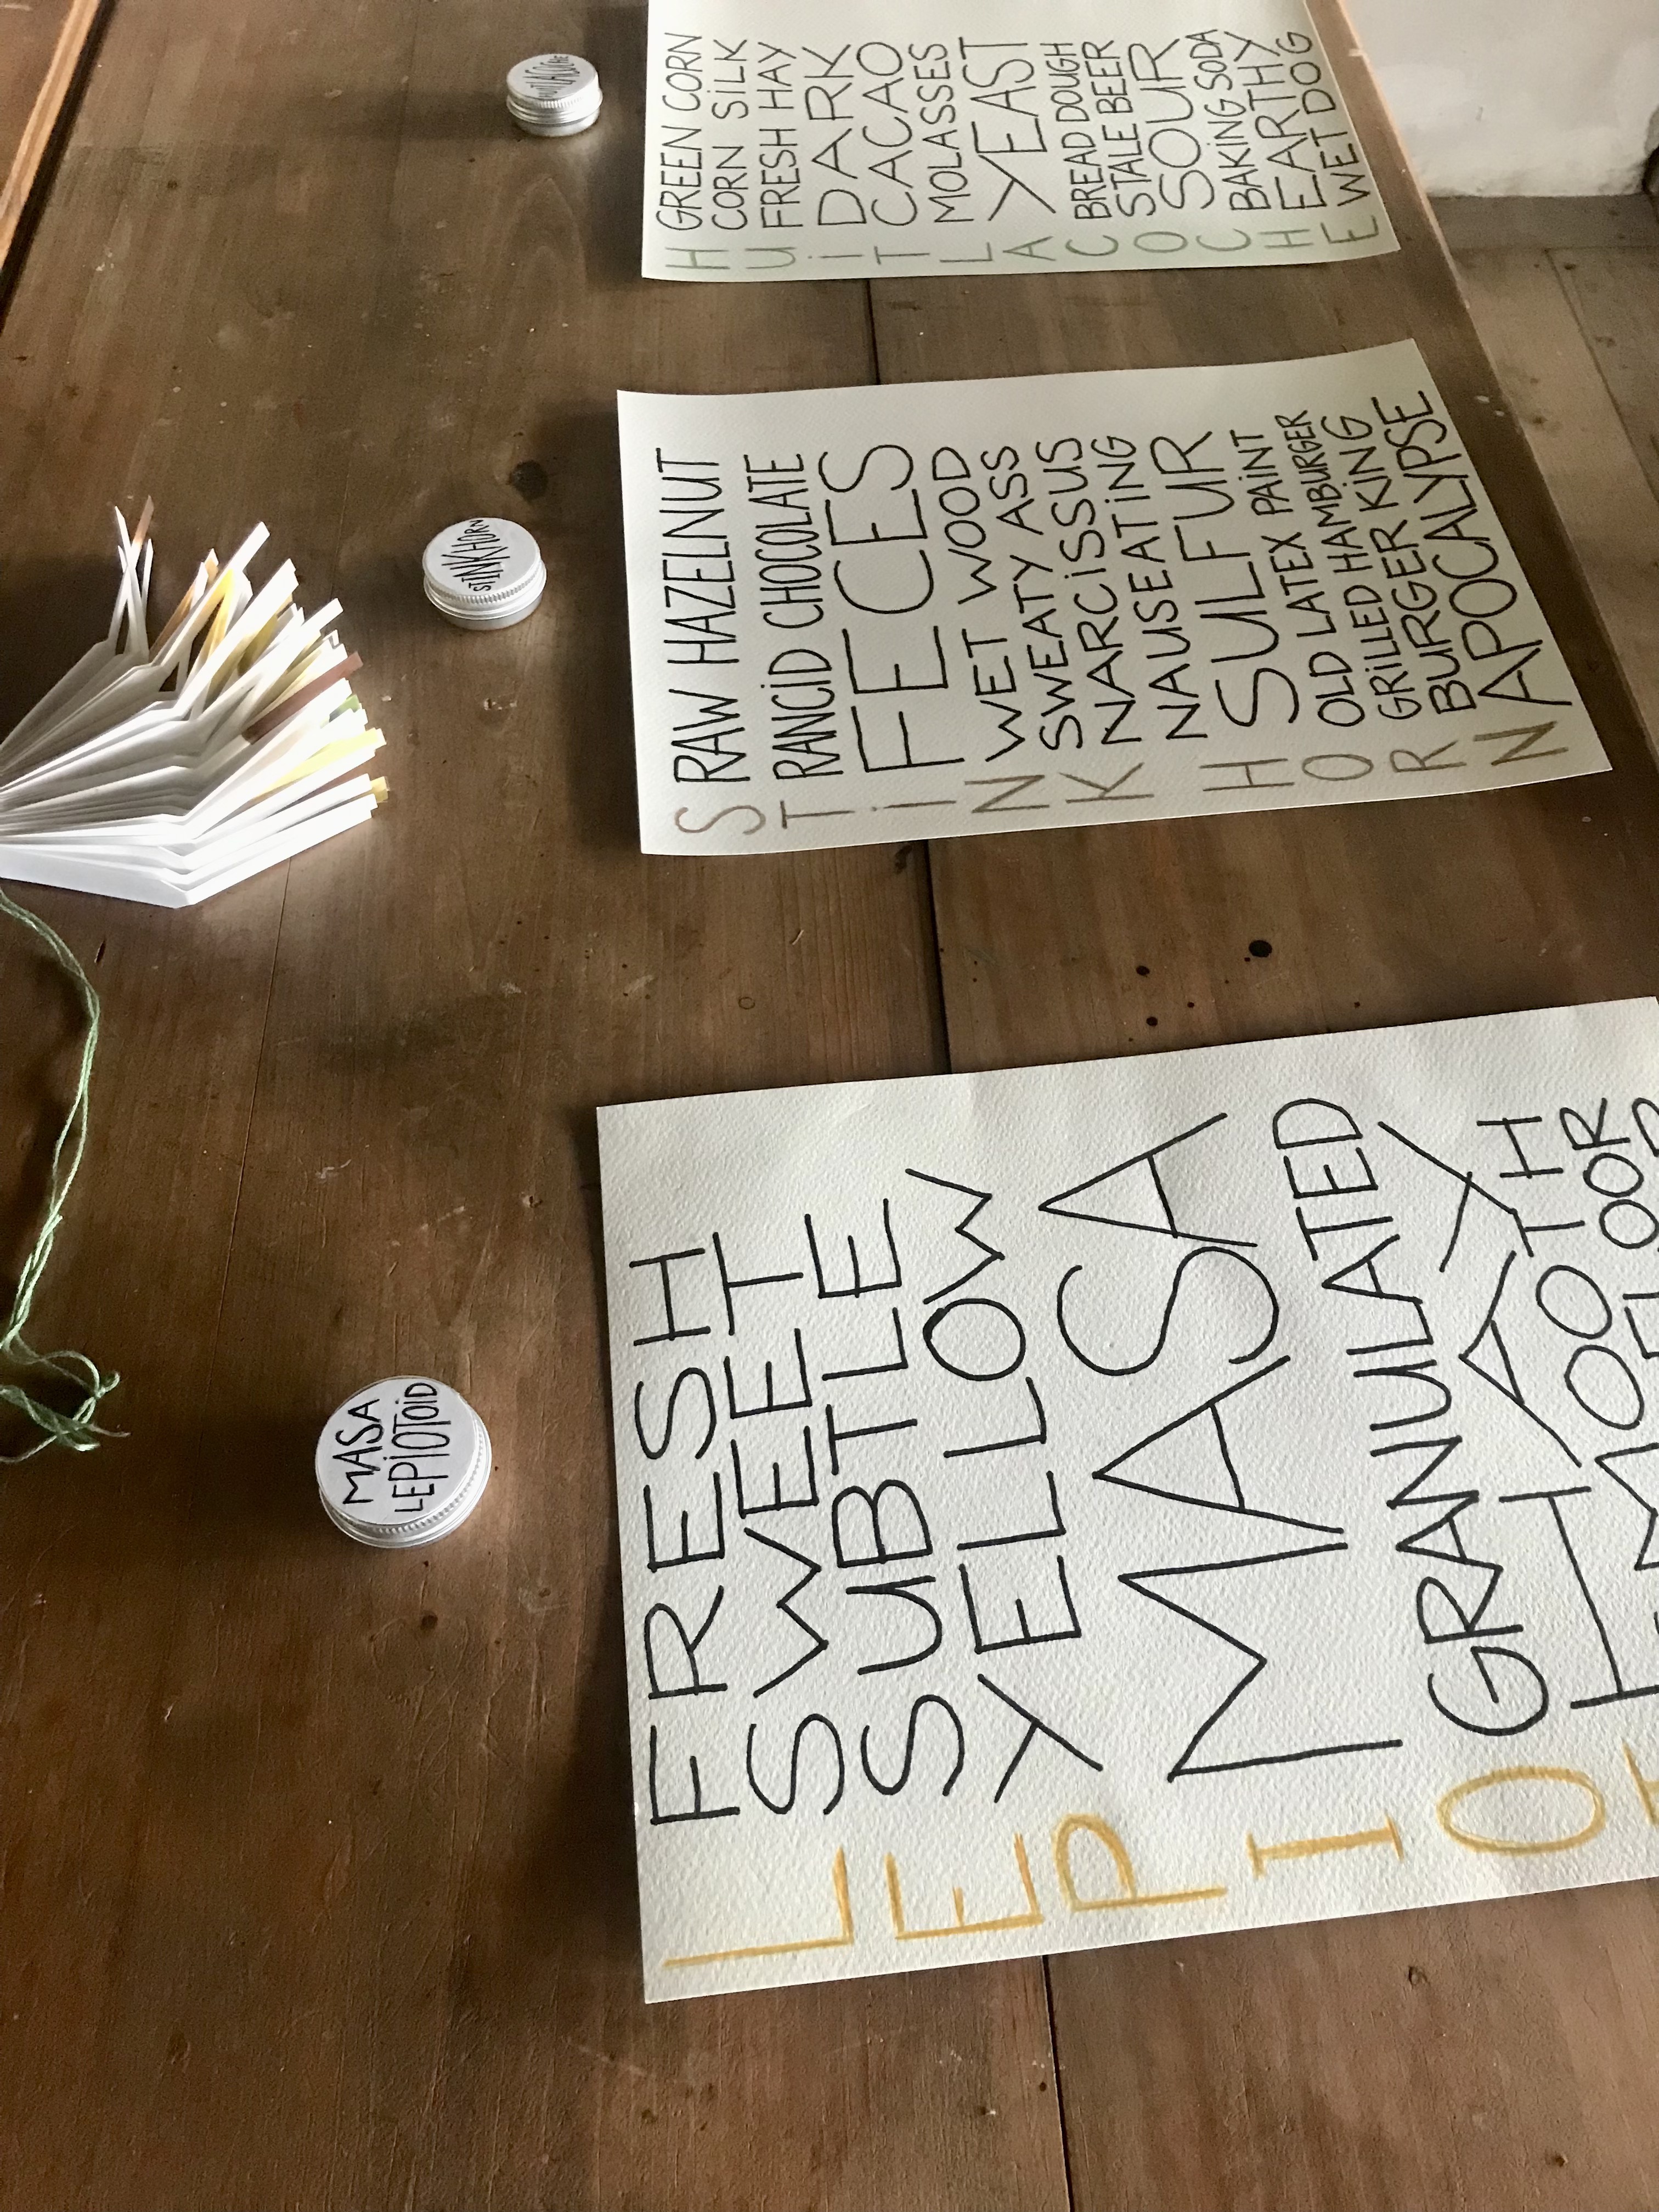 HUITLACOCHE
GREEN CORN
CORN SILK
FRESH HAY
DARK
CACAO
MOLASSES
YEAST
BREAD DOUGH
STALE BEER
SOUR
BAKING SODA
EARTHY
WET DOG
STINKHORN
STINKHORN
RAW HAZELNUT
RANCID CHOCOLATE
FECES
WET WOOD
SWEATY ASS
NARCISSUS
NAUSEATING
SULFUR
OLD LATEX PAINT
GRILLED HAMBURGER
BURGER KING
APOCALYPSE
MASA
LEPIOTOID
LEPIO
FRESH
SWEET
SUBTLE
YELLOW
MASA
GRANULATED